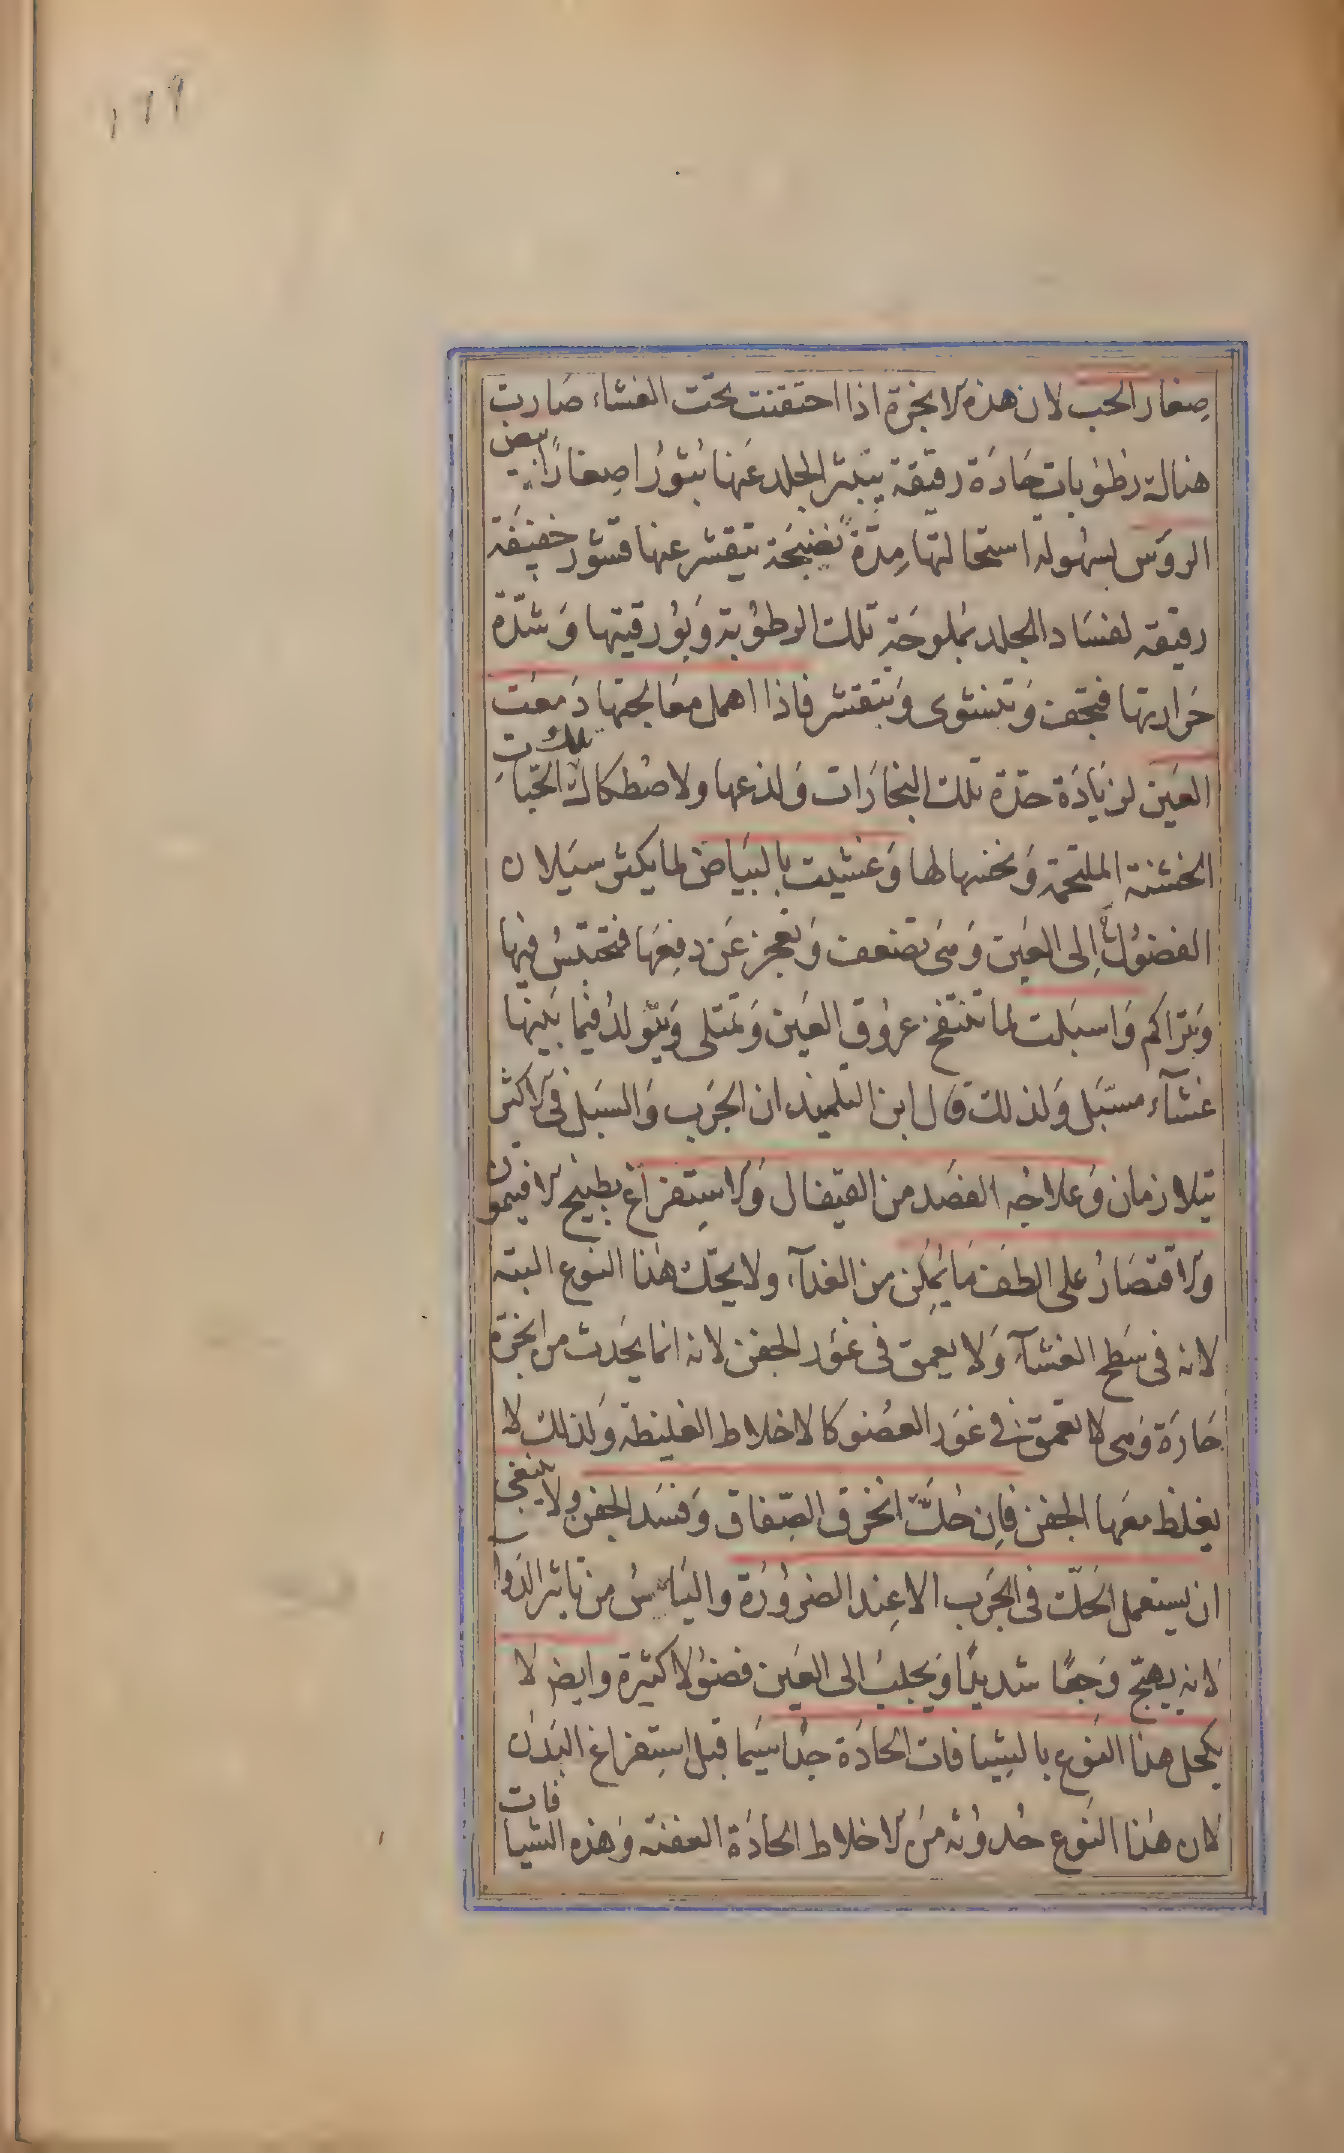 ١٩٩
صغار الحب لان هذه الابخرة اذا احتقنت تحت الغشاء صارت
هناك رطوبات حادة رقيقة يتبثر الجلد عنها بثورا صغارا بيض
الروس بسهولة استحالتها مدة نضيجة يتقشر عنها قشور خفيفة
رقيقة لفساد الجلد بملوحة تلك الرطوبة وبورقيتها وشدة
حرارتها فتجف وتنشوى وتتقشر فاذا اهمل معالجتها دمعت
العين لزيادة حدة تلك البخارات ولذعها ولاصطكاك تلك الحبات
الخشنة الملتحمة ونخسها لها وغشيت بالبياض لما يكثر سيلان
الفضول الى العين وهى تضعف وتعجز عن دفعها فتحتبس فيها
وتتراكم واسبلت لما تنتفخ عروق العين وتمتلى ويتولد فيما بينها
غشآء مسبل ولذلك قال ابن التلميذ ان الجرب والسبل فى الاكثر
يتلازمان وعلاجه الفصد من القيفال والاستفراغ بطبيخ الافيمون
والاقتصار على الطف ما يمكن من الغدآء ولا يحك هذا النوع البتة
لانه فى سطح الغشآء ولا يعمق فى غور الجفن لانه انما يحدث من ابخرة
حارة وهى لا تعمق فى غور العضو كالاخلاط الغليظة ولذلك لا
يغلظ معها الجفن فان حك انخرق الصفاق وفسد الجفن ولا ينبغى
ان يستعمل الحك فى الجرب الا عند الضرورة والياس من تاثير الدوا
لانه يهيج وجعا شديدا ويجلب الى العين فضولا كثيرة وايض لا
يكحل هذا النوع بالشيافات الحادة جدا سيما قبل استفراغ البدن
لان هذا النوع حدوثه من الاخلاط الحادة العفنة وهذه الشيافات